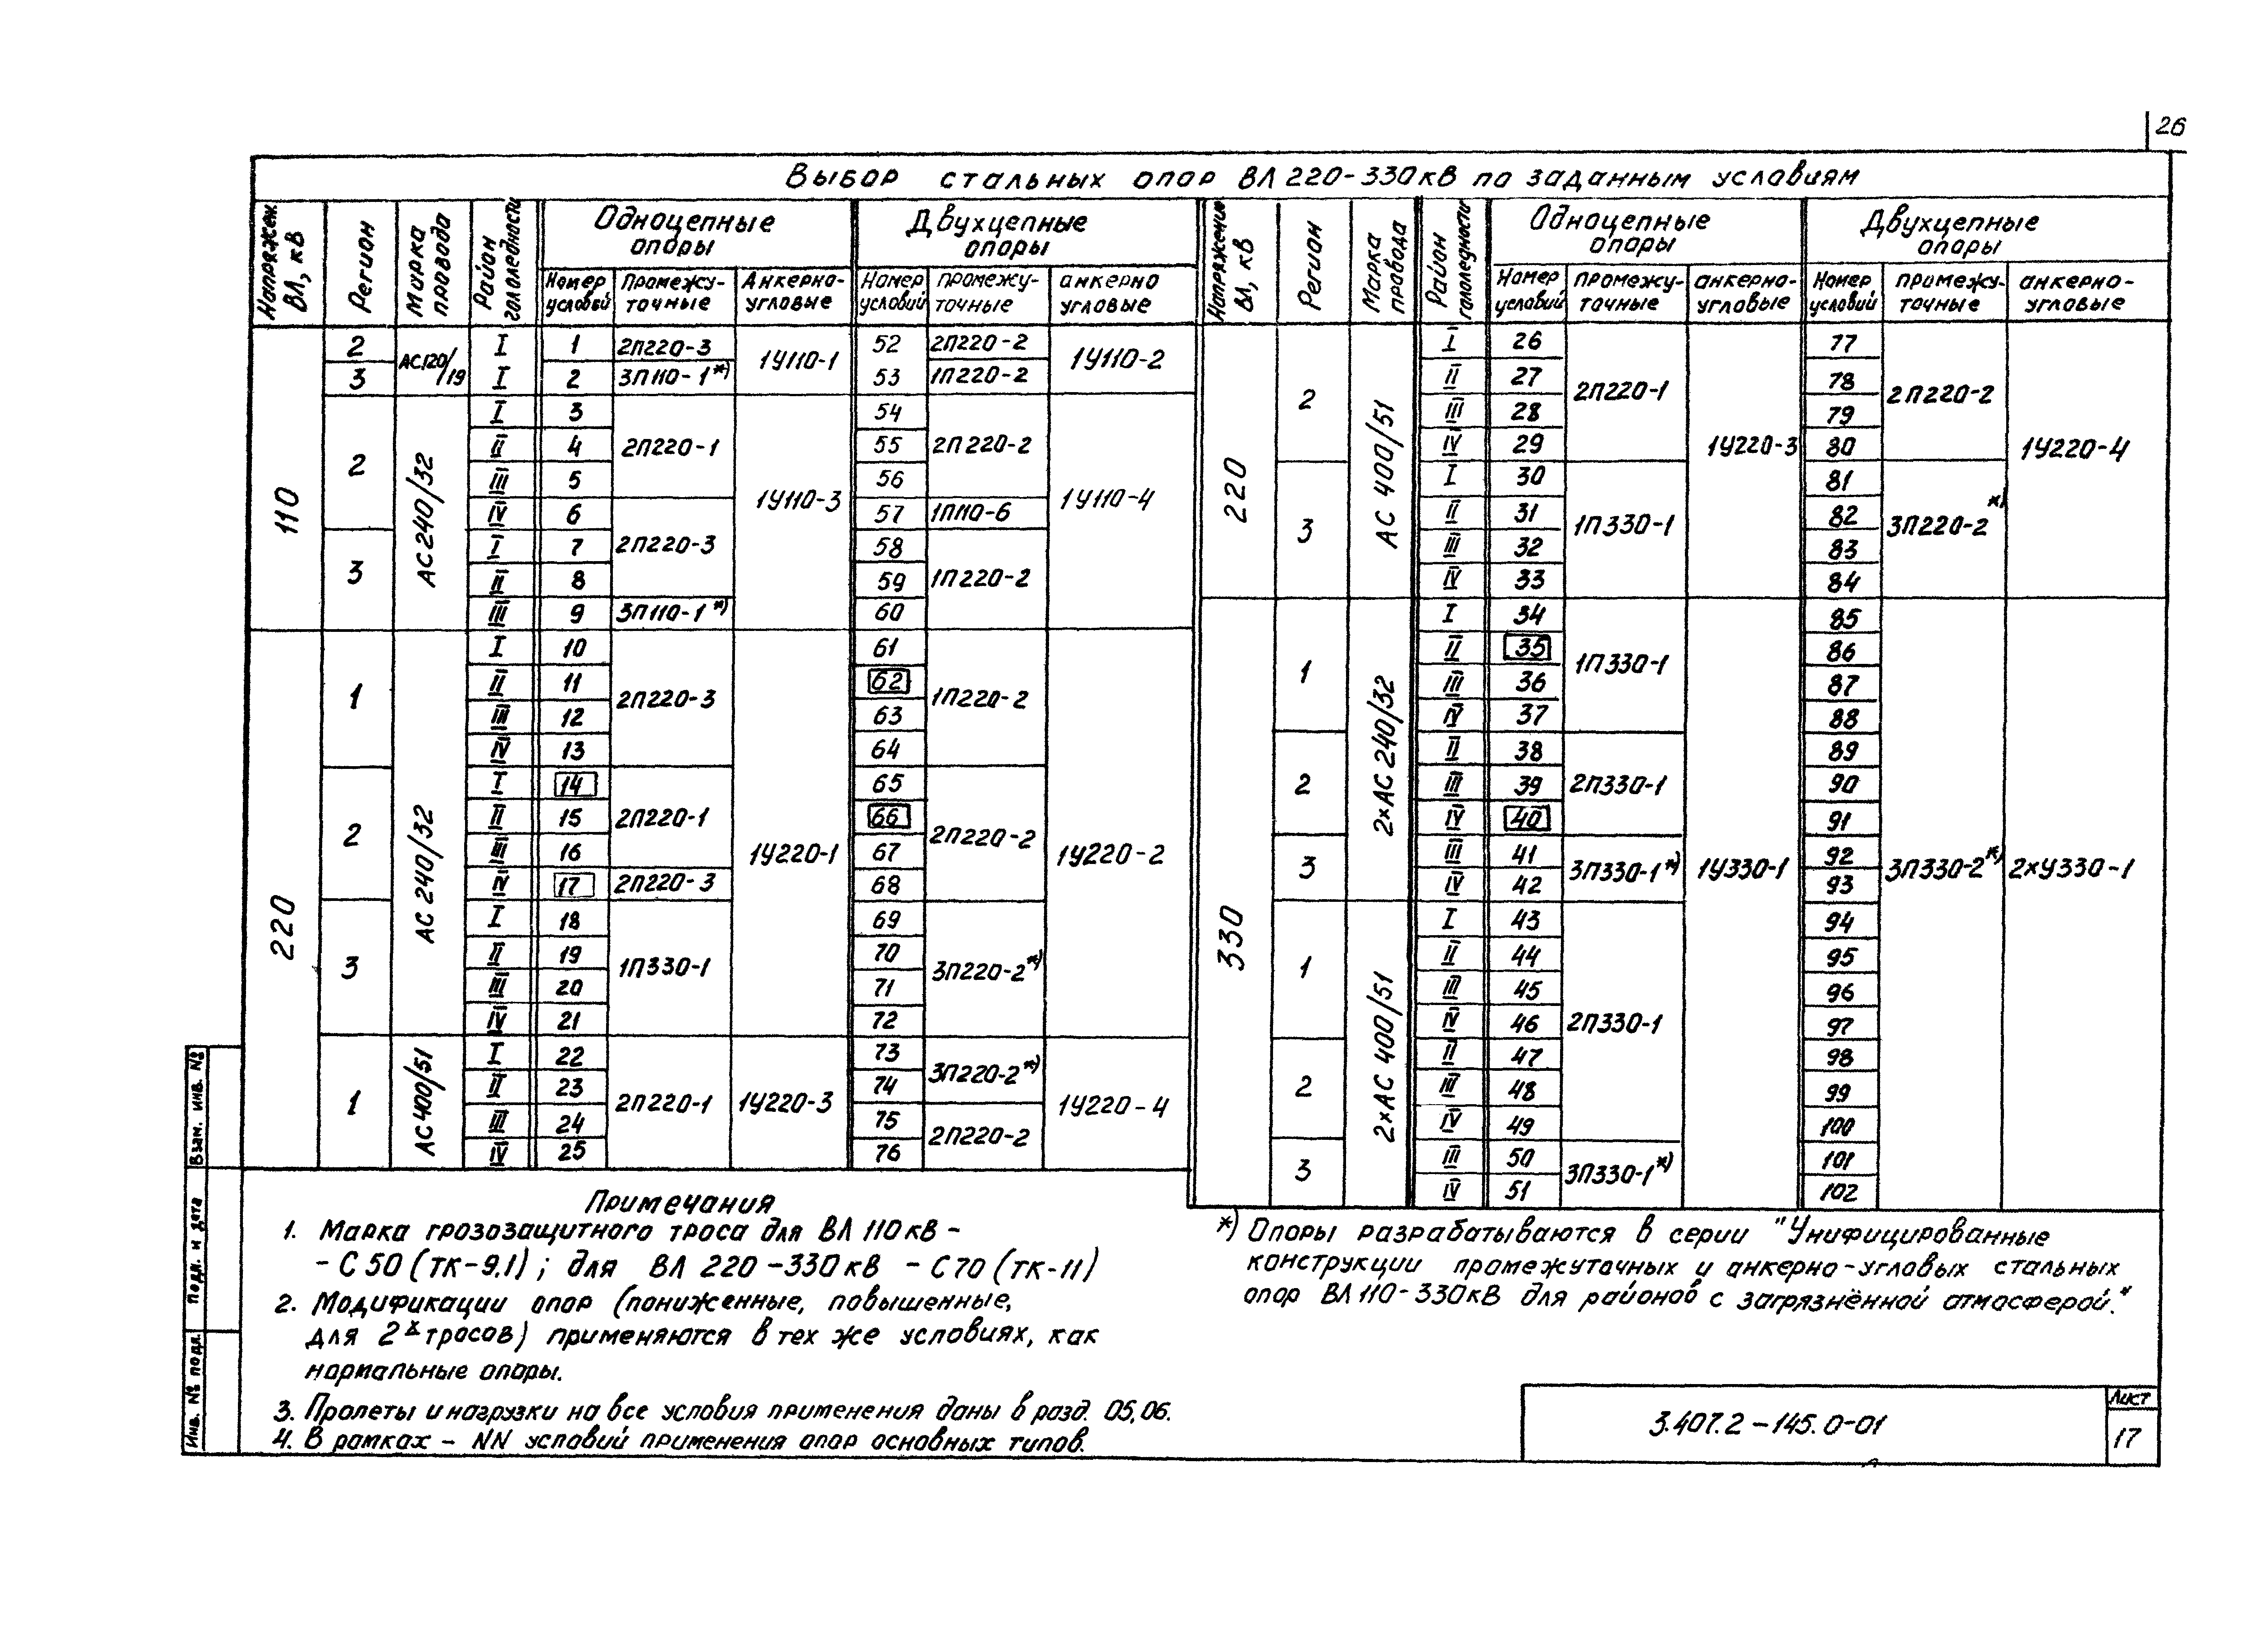 26
Выбор стальных опор ВЛ 220-330кВ по заданным условиям
Напряжен. ВЛ, кВ
Регион
Марка провода
Район гололедности
Одноцепные опоры
Двухцепные опоры
Номер условий
Промежуточные
Анкерно-угловые
Номер условий
промежу-точные
анкерно угловые
110
2 АС120/19 I 1 2П220-3 1У110-1 52 2П220-2 1У110-2
3 I 2 3П110-1*) 53 1П220-2
2 АС240/32 I 3 2П220-1 1У110-3 54 2П220-2 1У110-4
II 4 55
III 5 56
IV 6 2П220-3 57 1П110-6
3 I 7 58 1П220-2
II 8 59
III 9 3П110-1*) 60
220
1 АС 240/32 I 10 2П220-3 1У220-1 61 1П220-2 1У220-2
II 11 62
III 12 63
IV 13 64
2 I 14 2П220-1 65 2П220-2
II 15 66
III 16 67
IV 17 2П220-3 68
3 I 18 1П330-1 69 3П220-2*)
II 19 70
III 20 71
IV 21 72
1 АС400/51 I 22 2П220-1 1У220-3 73 3П220-2*) 1У220-4
II 23 74
III 24 75 2П220-2
IV 25 76
Напряжение ВЛ, кВ
Регион
Марка провода
Район гололедности
Одноцепные опоры
Двухцепные опоры
Номер условий
промежу-точные
анкерно-угловые
Номер условий
промежу-точные
анкерно-угловые
220
2 АС 400/51 I 26 2П220-1 1У220-3 77 2П220-2 1У220-4
II 27 78
III 28 79
IV 29 80
3 I 30 1П330-1 81 3П220-2*)
II 31 82
III 32 83
IV 33 84
330
1 2×АС 240/32 I 34 1П330-1 1У330-1 85 3П330-2*) 2×У330-1
II 35 86
III 36 87
IV 37 88
2 II 38 2П330-1 89
III 39 90
IV 40 91
3 III 41 3П330-1*) 92
IV 42 93
1 2×АС 400/51 I 43 2П330-1 94
II 44 95
III 45 96
IV 46 97
2 II 47 98
III 48 99
IV 49 100
3 III 50 3П330-1*) 101
IV 51 102
Примечания
1. Марка грозозащитного троса для ВЛ 110кВ -
- С 50 (ТК-9.1) ; для ВЛ 220-330кВ - С70 (ТК-11)
2. Модификации опор (пониженные, повышенные,
для 2х тросов) применяются в тех же условиях, как
нормальные опоры.
3. Пролеты и нагрузки на все условия применения даны в разд. 05, 06.
4. В рамках - NN условий применения опор основных типов.
*) Опоры разрабатываются в серии "Унифицированные
конструкции промежуточных и анкерно-угловых стальных
опор ВЛ 110-330кВ для районов с загрязнённой атмосферой."
Взам. инв. №
Подп. и дата
Инв. № подл.
3.407.2-145.0-01
Лист
17